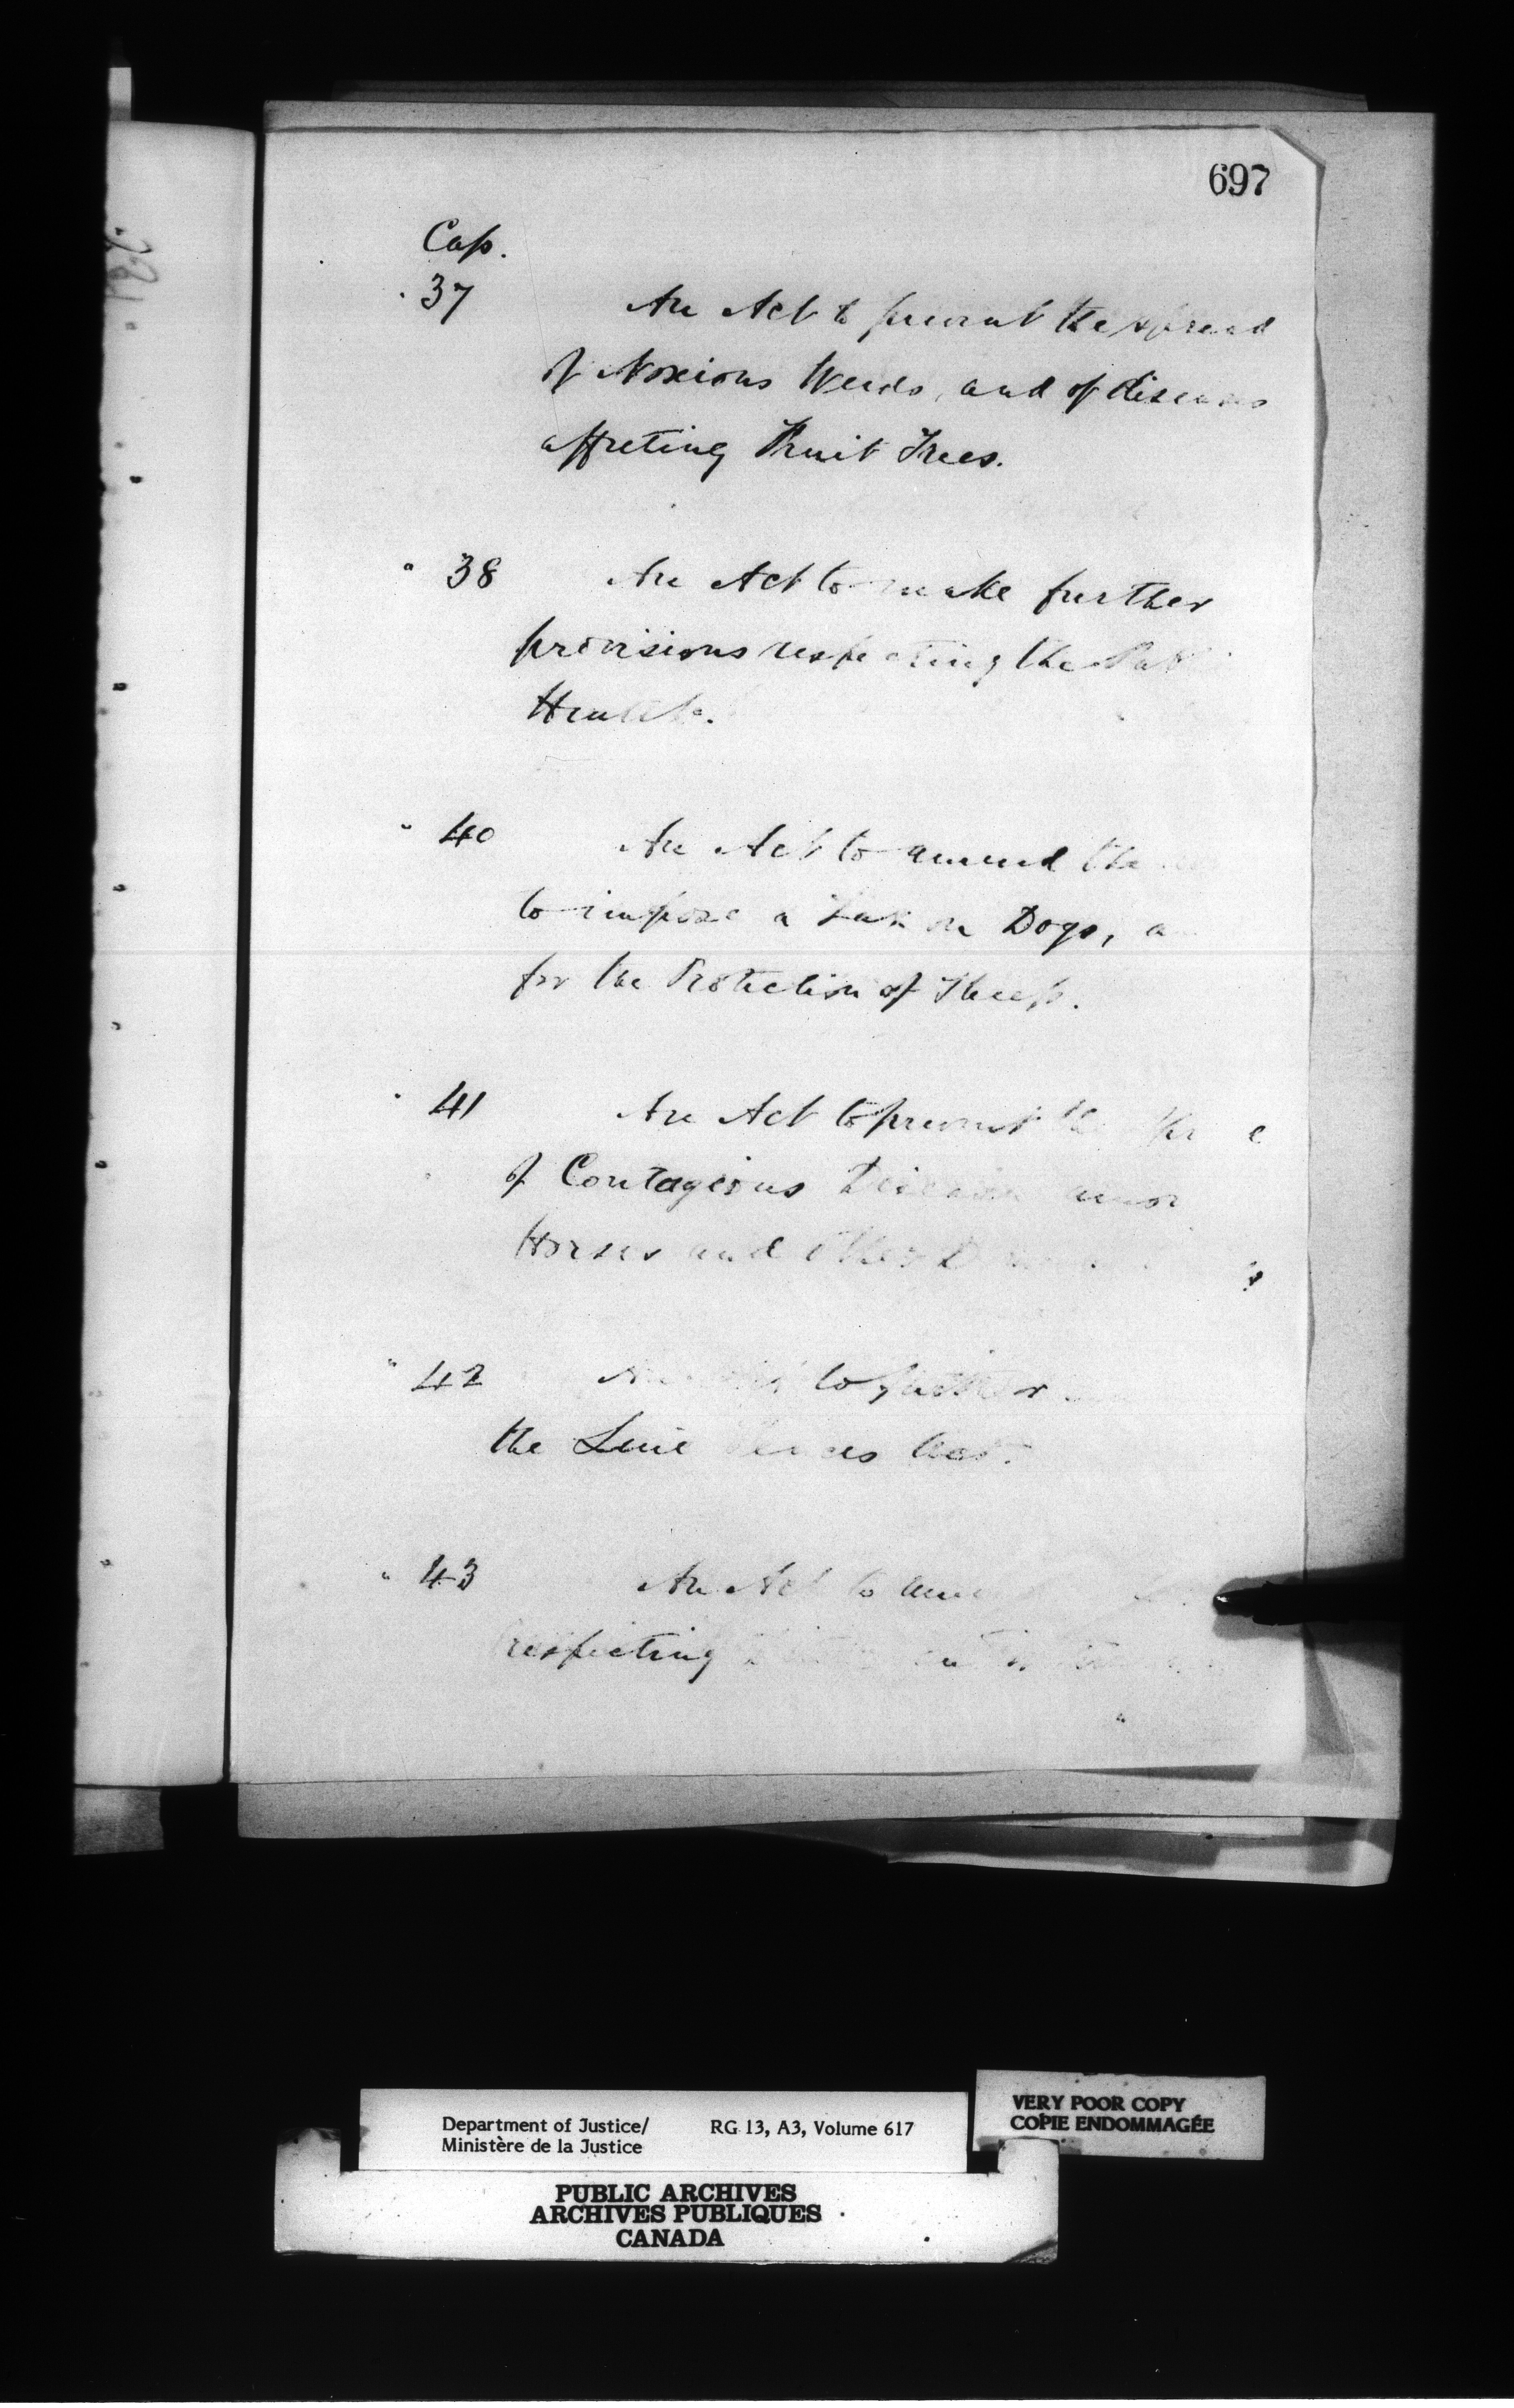 697
Cap.
37 An Act to prevent the spread
of Noxious Weeds, and of diseases
affecting Fruit Trees.
" 38 An Act to make further
provisions respecting the Public
Health.
" 40 An Act to amend the
to impose a Tax on Dogs, a
for the Protection of Sheep.
" 41 An Act to prevent the
of Contagious Diseases
Horses and other
" 42 to further
the Line Fences Act.
" 43 An Act to
respecting
Department of Justice/
Ministère de la Justice
RG 13, A3, Volume 617
VERY POOR COPY
COPIE ENDOMMAGÉE
PUBLIC ARCHIVES
ARCHIVES PUBLIQUES
CANADA